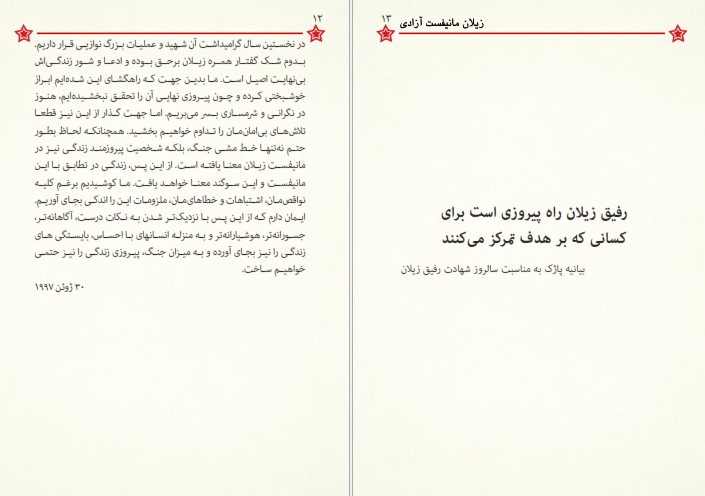 ۱۲
در نخستین سال گرامیداشت آن شهید و عملیات بزرگ نوازیی قرار داریم.
بدوم شک گفتار همره زیلان برحق بوده و ادعا و شور زندگی‌اش
بی‌نهایت اصیل است. ما بدین جهت که راهگشای این شده‌ایم ابراز
خوشبختی کرده و چون پیروزی نهایی آن را تحقق نبخشیده‌ایم، هنوز
در نگرانی و شرمساری بسر می‌بریم. اما جهت گذار از این نیز قطعا
تلاش‌های بی‌امان‌مان را تداوم خواهیم بخشید. همچنانکه لحاظ بطور
حتم نه‌تنها خط مشی جنگ، بلکه شخصیت پیروزمند زندگی نیز در
مانیفست زیلان معنا یافته است. از این پس، زندگی در تطابق با این
مانیفست و این سوگند معنا خواهد یافت. ما کوشیدیم برغم کلیه
نواقص‌مان، اشتباهات و خطاهای‌مان، ملزومات این را اندکی بجای آوریم.
ایمان دارم که از این پس با نزدیک‌تر شدن به نکات درست، آگاهانه‌تر،
جسورانه‌تر، هوشیارانه‌تر و به منزله انسانهای با احساس، بایستگی های
زندگی را نیز بجای آورده و به میزان جنگ، پیروزی زندگی را نیز حتمی
خواهیم ساخت.
۳۰ ژوئن ۱۹۹۷
۱۳
زیلان مانیفست آزادی
رفیق زیلان راه پیروزی است برای
کسانی که بر هدف تمرکز می‌کنند
بیانیه پاژک به مناسبت سالروز شهادت رفیق زیلان